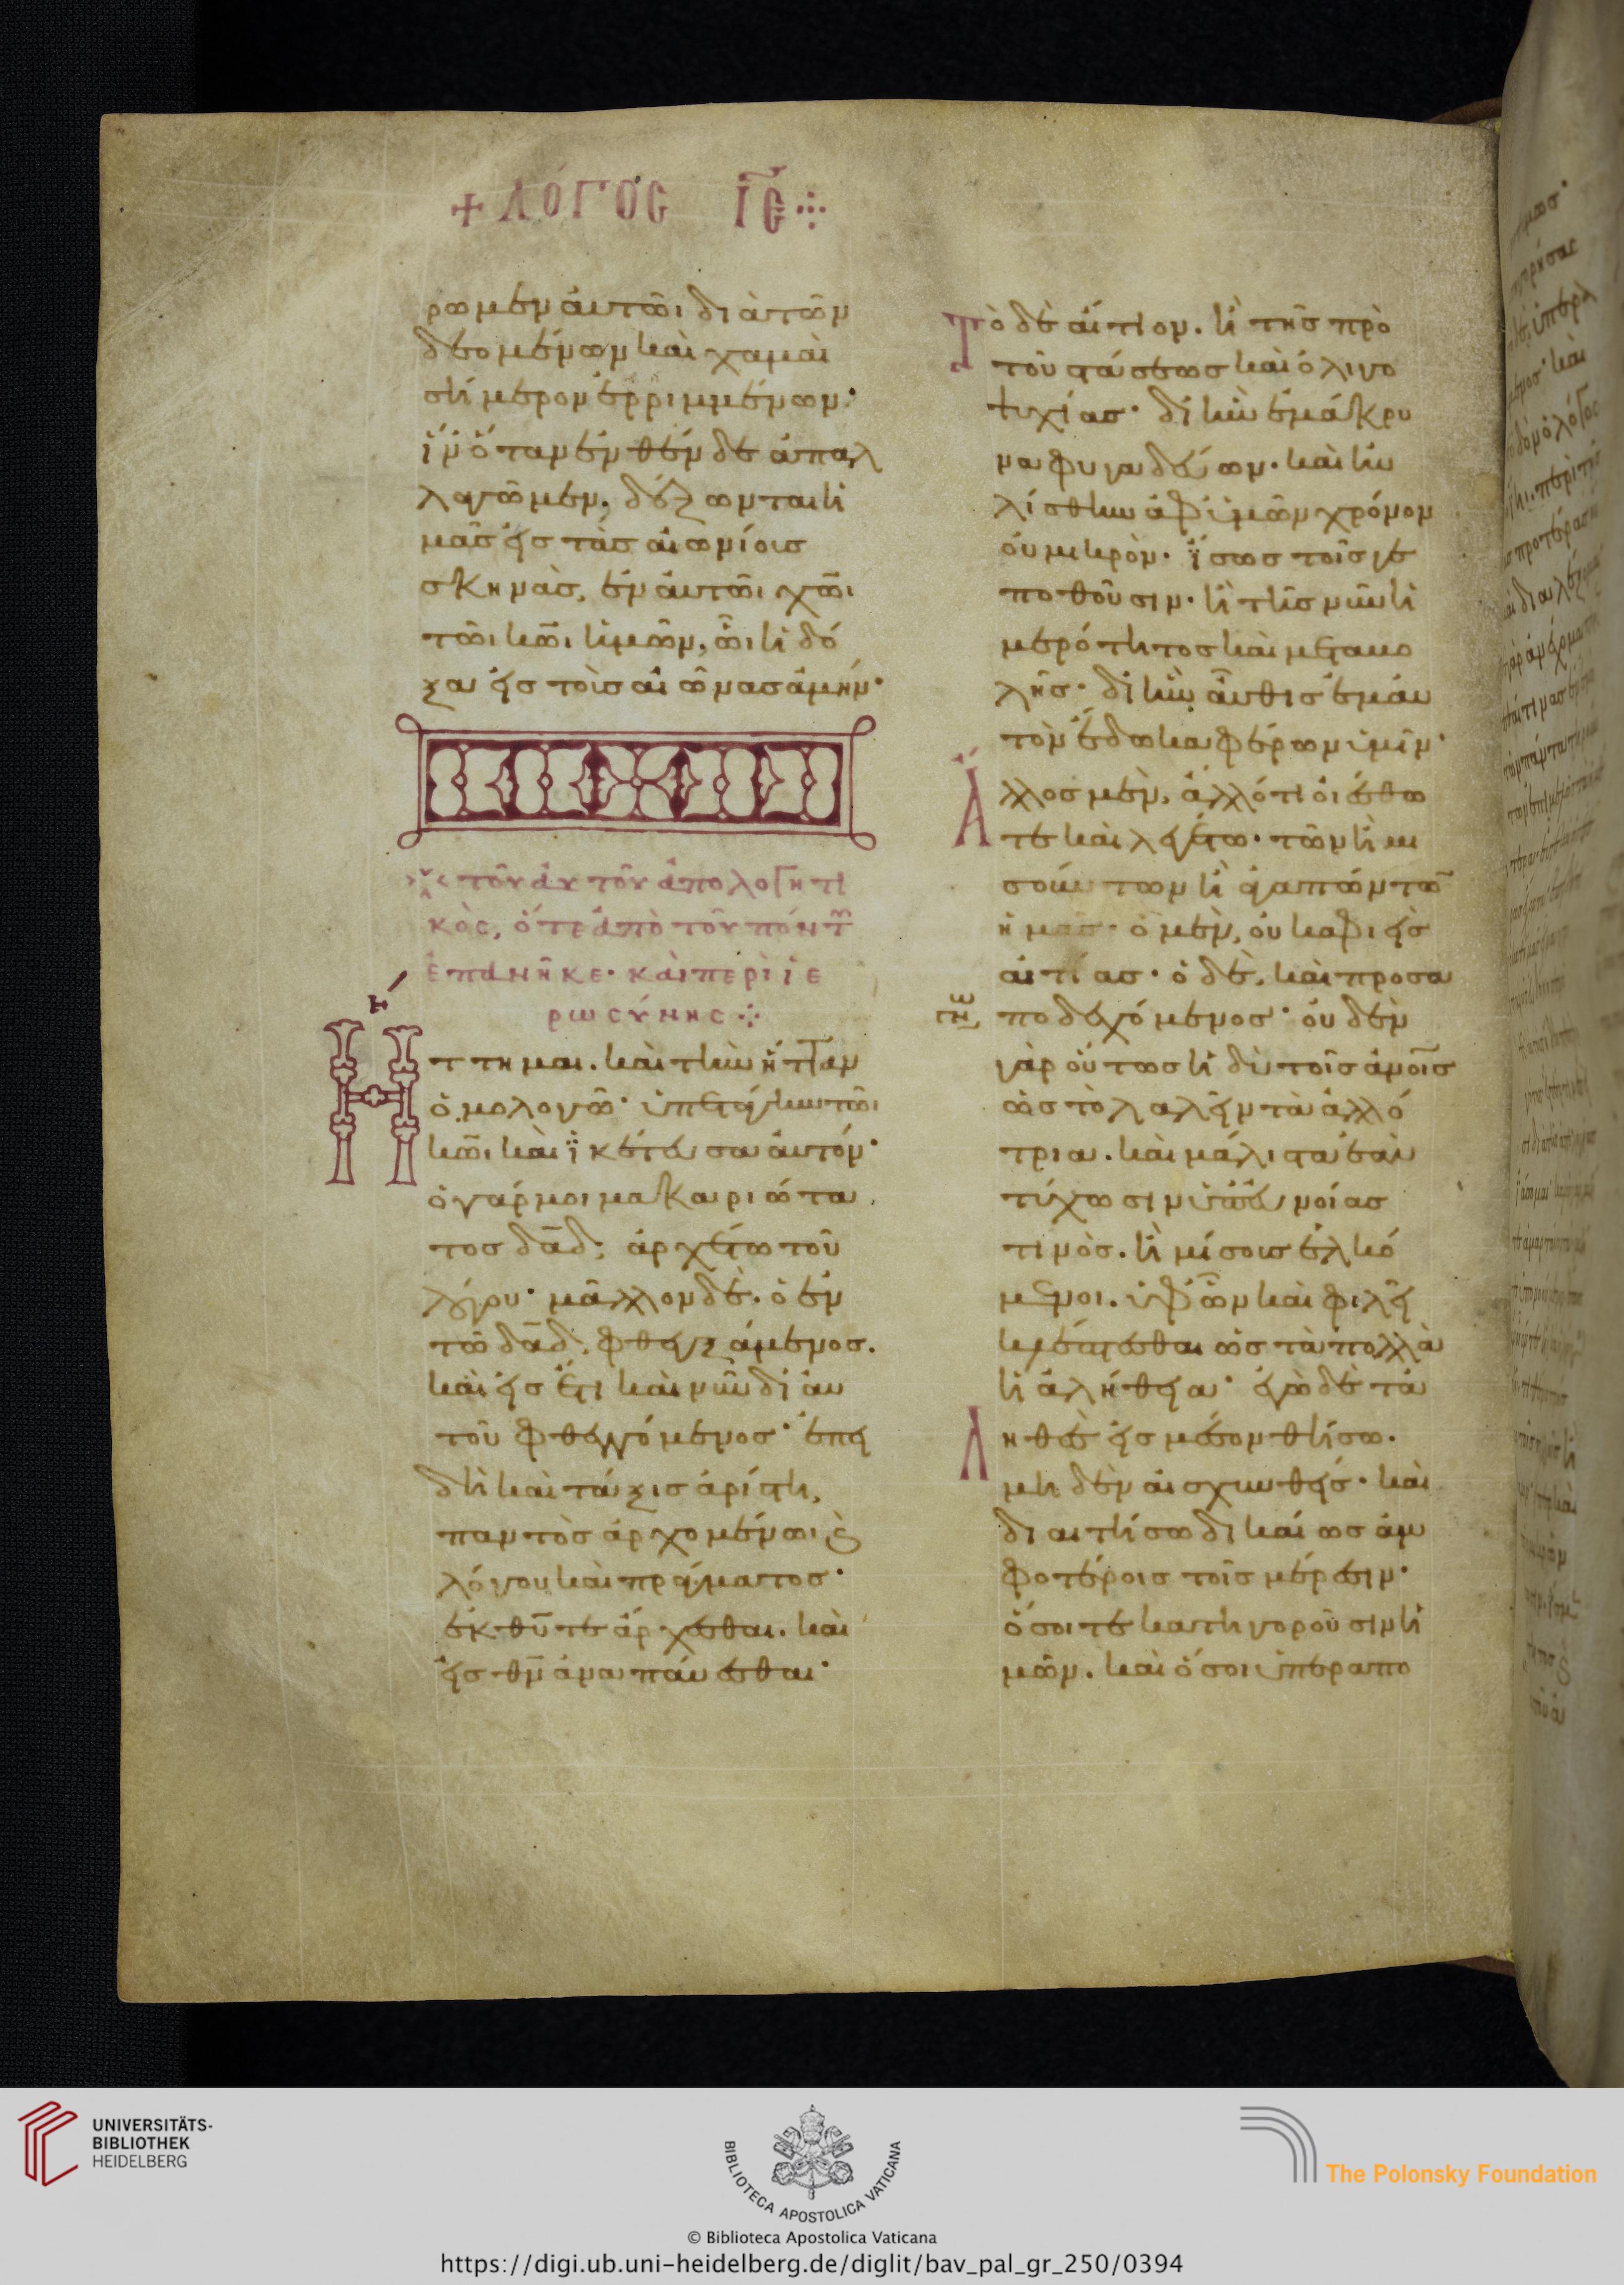 + ΛΌΓΟC ΙϚ̅ ⁘
ρωμεν ἀυτῶι διὰ τῶν
δεομένων καὶ χαμαὶ
σήμερον ἐρριμμένων·
ἵν' ὅταν ἐνθένδε ἀπαλ
λαγῶμεν, δέξωνται ἡ
μᾶς εἰς τὰς αἰωνίους
σκηνὰς, ἐν ἀυτῶι χ̅ω̅ι
τῶι κ̅ω̅ι ἡμῶν, ὧι ἡ δό
ξα εἰς τοὺς αἰῶνας ἀμήν·
τοῦ ἀυτοῦ ἀπολογητι
κὸς, ὅτε ἀπὸ τοῦ πόντ
ἐπανῆκε· κὰι περὶ ἱε
ρωσύνης ⁘
Ήττημαι. καὶ τὴν ἧτταν
ὁμολογῶ· ὑπετάγην τῶι
κ̅ω̅ι καὶ ἱκέτευσα ἀυτόν·
ὁ γάρ μοι μακαριώτα
τος δ̅α̅δ, ἀρχέτω τοῦ
λόγου· μᾶλλον δὲ. ὁ ἐν
τῶ δ̅α̅δ, φθεγξάμενος.
καὶ εἰς ἔτι καὶ νῦν δι' ἀυ
τοῦ φθεγγόμενος· ἐπει
δὴ καὶ τάξις ἀρίστη,
παντὸς ἀρχομένωι καὶ
λόγου καὶ πράγματος·
ἐκ θ̅υ̅ τε ἄρχεσθαι. καὶ
εἰς θ̅ν̅ ἀναπάυεσθαι·
Τὸ δὲ αἴτιον. ἢ τῆς πρὸ
τοῦ στάσεως καὶ ὀλιγο
ψυχίας· δι' ἣν ἐμάκρυ
να φυγαδεύων. καὶ ηὐ
λίσθην ἀφ' ὑμῶν χρόνον
οὐ μικρὸν· ἴσως τοῖς γε
ποθοῦσιν· ἢ τῆς νῦν ἡ
μερότητος καὶ μεταβο
λῆς· δι' ἣν ἆυθις ἐμαυ
τὸν ἔδωκα φέρων ὑμῖν·
Ἄλλος μὲν, ἄλλό τι οἰέσθω
τε καὶ λεγέτω· τῶν ἢ μι
σούντων ἢ ἀγαπώντω̅
ἡμᾶς· ὁ μὲν, οὐκ ἀφιεὶς
αἰτίας· ὁ δὲ, καὶ προσα
ποδεχόμενος· οὐδὲν
γὰρ οὕτως ἡδὺ τοῖς ἀνοις
ὡς τὸ λαλεῖν τὰ ἀλλό
τρια. καὶ μάλιστα ἐὰν
τύχωσιν ὑπ' εὐνοίας
τινὸς. ἢ μίσους ἑλκό
μενοι. ὑφ' ὧν καὶ φιλεῖ
κλέπτεσθαι ὡς τὰ πολλὰ
ἡ ἀλήθεια· ἐγὼ δὲ τά
ληθὲς εἰς μέσον θήσω.
μηδὲν αἰσχυνθείς· καὶ
διαιτήσω δικαίως ἀμ
φοτέροις τοῖς μέρεσιν·
ὅσοι τε κατηγοροῦσιν ἡ
μῶν. καὶ ὅσοι ὑπεραπο
UNIVERSITÄTS-
BIBLIOTHEK
HEIDELBERG
BIBLIOTECA APOSTOLICA VATICANA
The Polonsky Foundation
© Biblioteca Apostolica Vaticana
https://digi.ub.uni-heidelberg.de/diglit/bav_pal_gr_250/0394